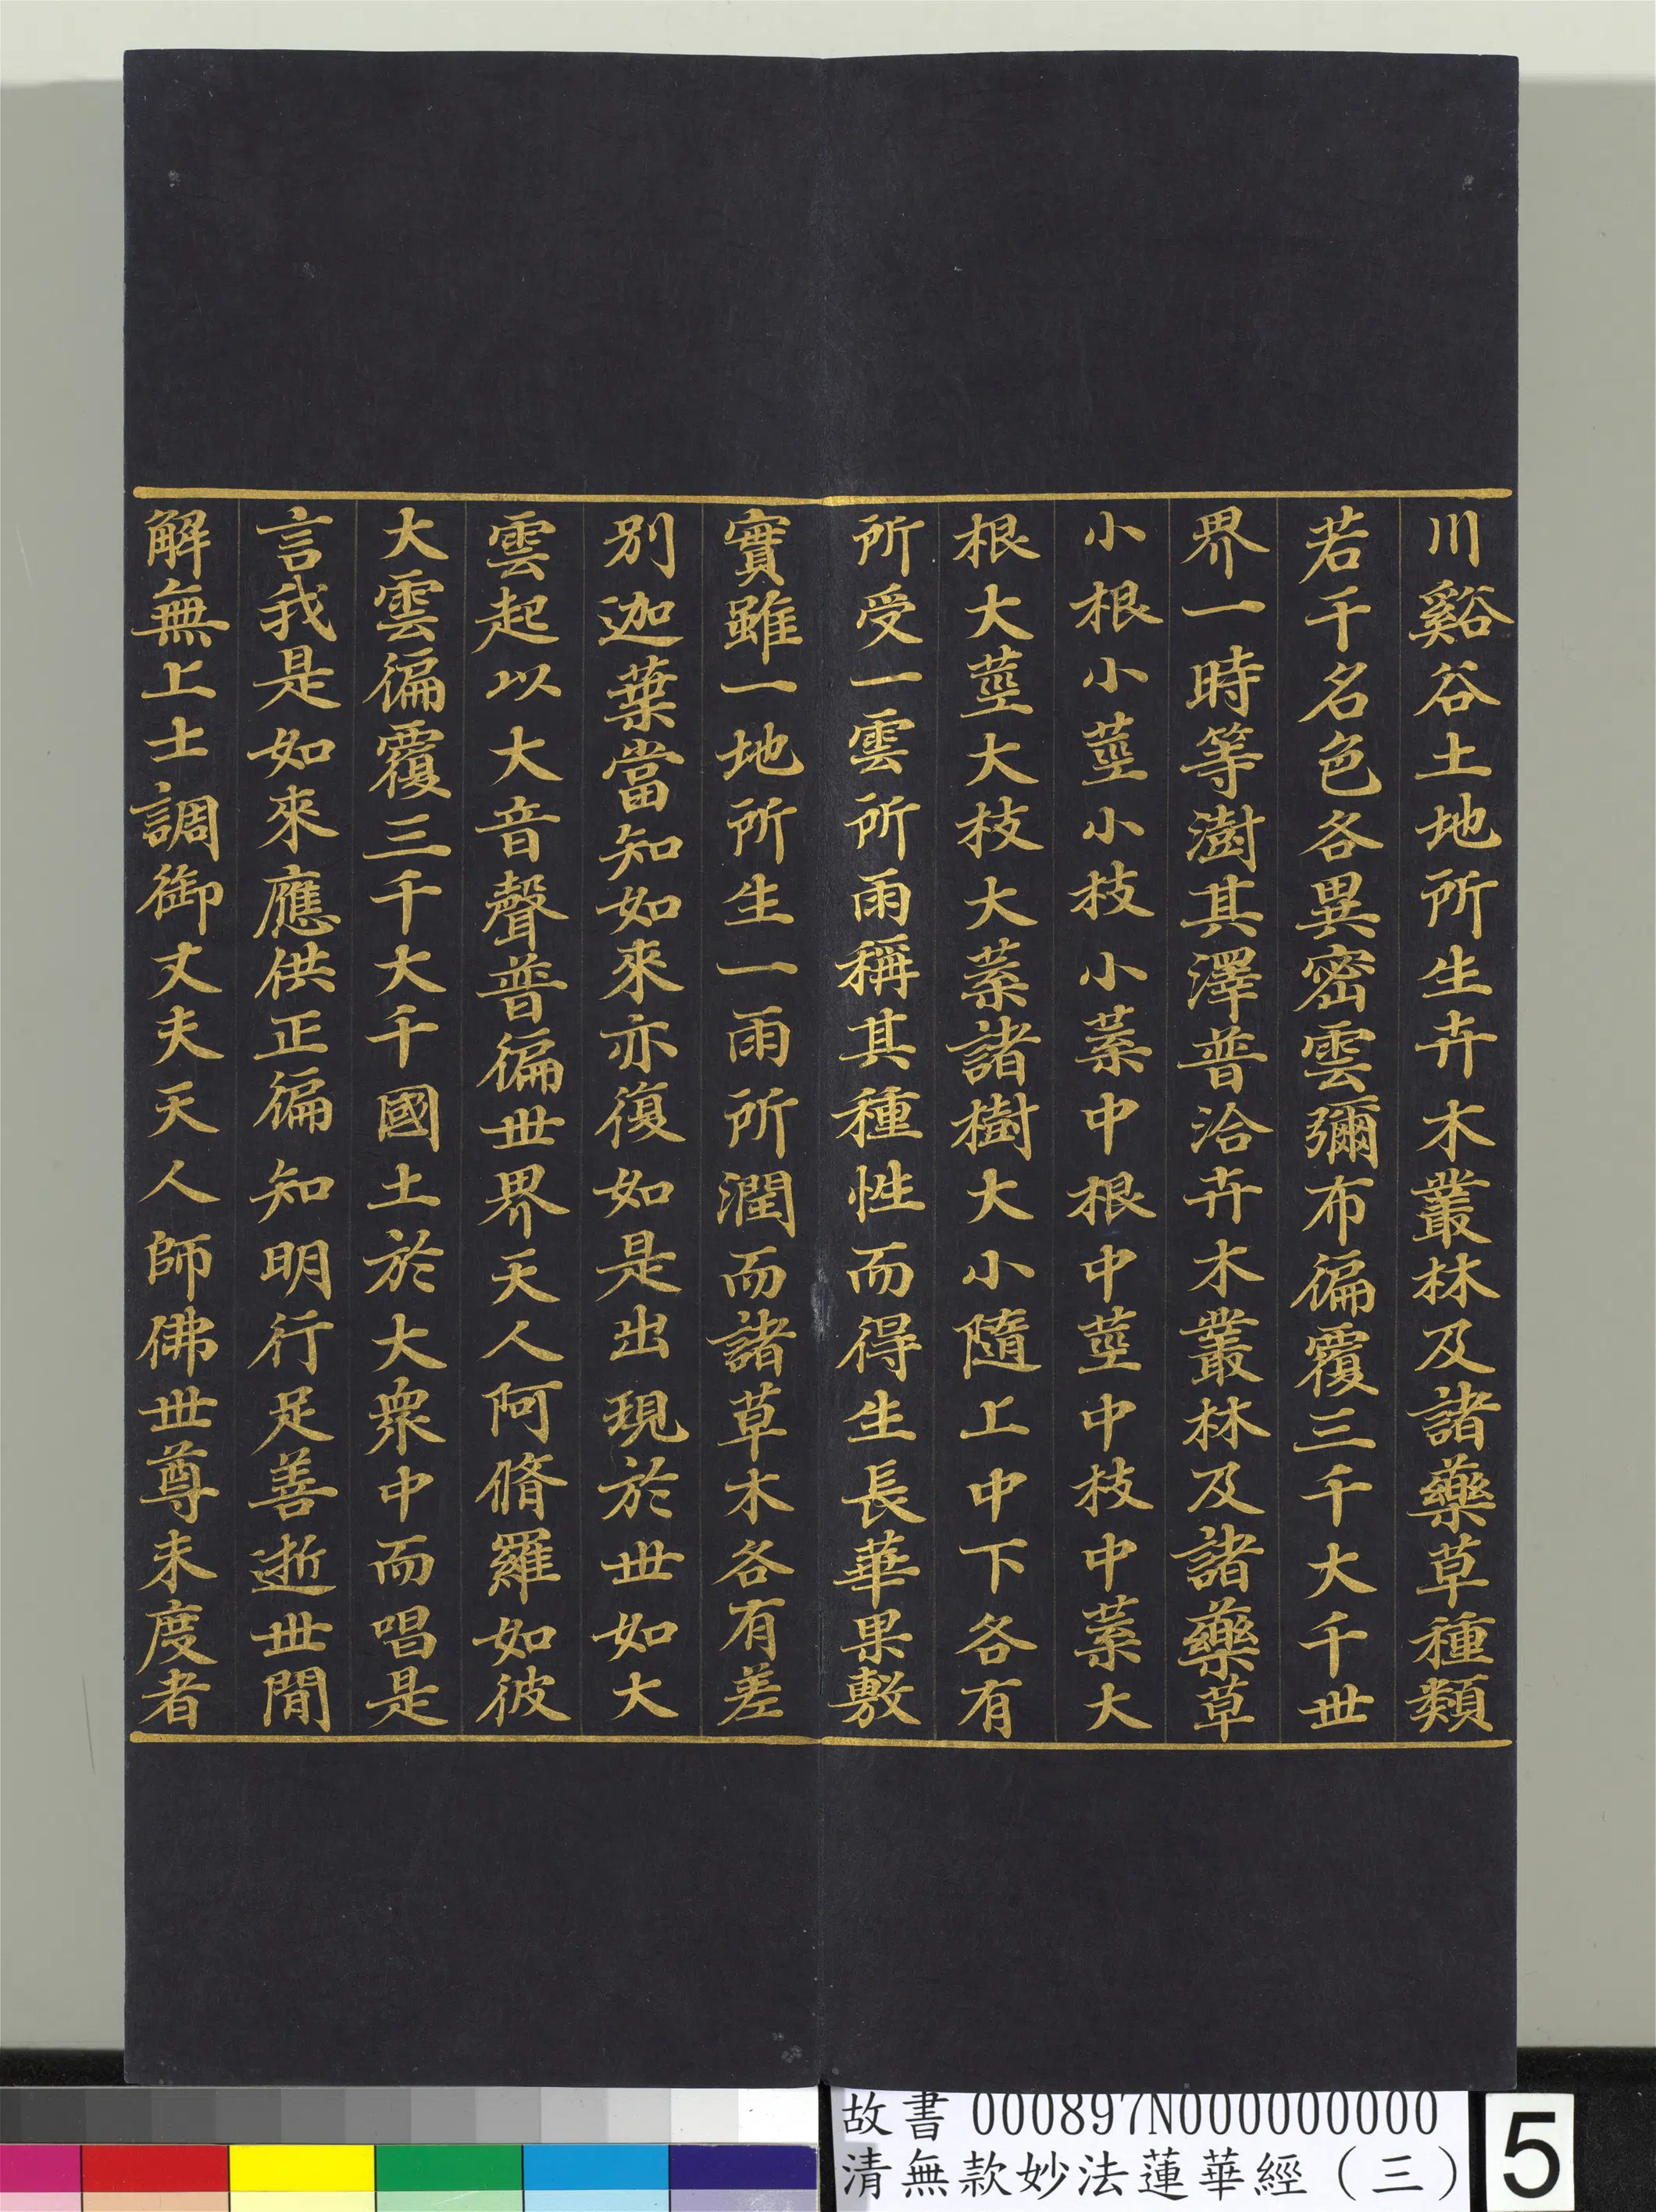 川谿谷土地所生卉木叢林及諸藥草種類
若干名色各異密雲彌布徧覆三千大千世
界一時等澍其澤普洽卉木叢林及諸藥草
小根小莖小枝小葉中根中莖中枝中葉大
根大莖大枝大葉諸樹大小隨上中下各有
所受一雲所雨稱其種性而得生長華果敷
實雖一地所生一雨所潤而諸草木各有差
別迦葉當知如來亦復如是出現於世如大
雲起以大音聲普徧世界天人阿脩羅如彼
大雲徧覆三千大千國土於大衆中而唱是
言我是如來應供正徧知明行足善逝世間
解無上士調御丈夫天人師佛世尊未度者
故書 000897N000000000
清無款妙法蓮華經（三）
5